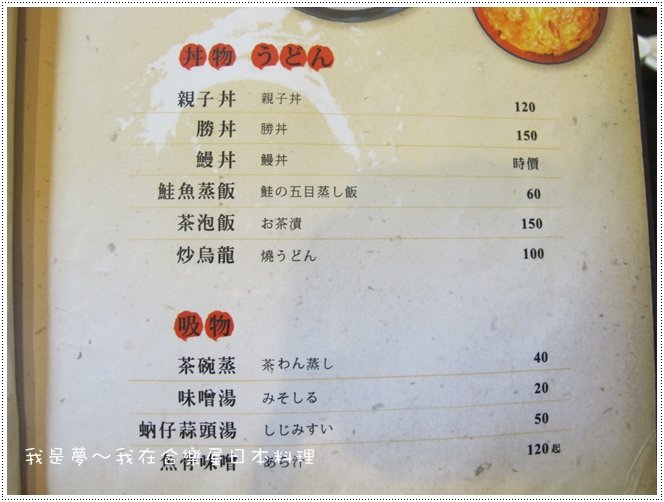 丼物 うどん
親子丼 親子丼 120
勝丼 勝丼 150
鰻丼 鰻丼 時價
鮭魚蒸飯 鮭の五目蒸し飯 60
茶泡飯 お茶漬 150
炒烏龍 燒うどん 100
吸物
茶碗蒸 茶わん蒸し 40
味噌湯 みそしる 20
蚋仔蒜頭湯 しじみすい 50
魚骨味噌 あら汁 120起
我是夢～我在合樂屋日本料理